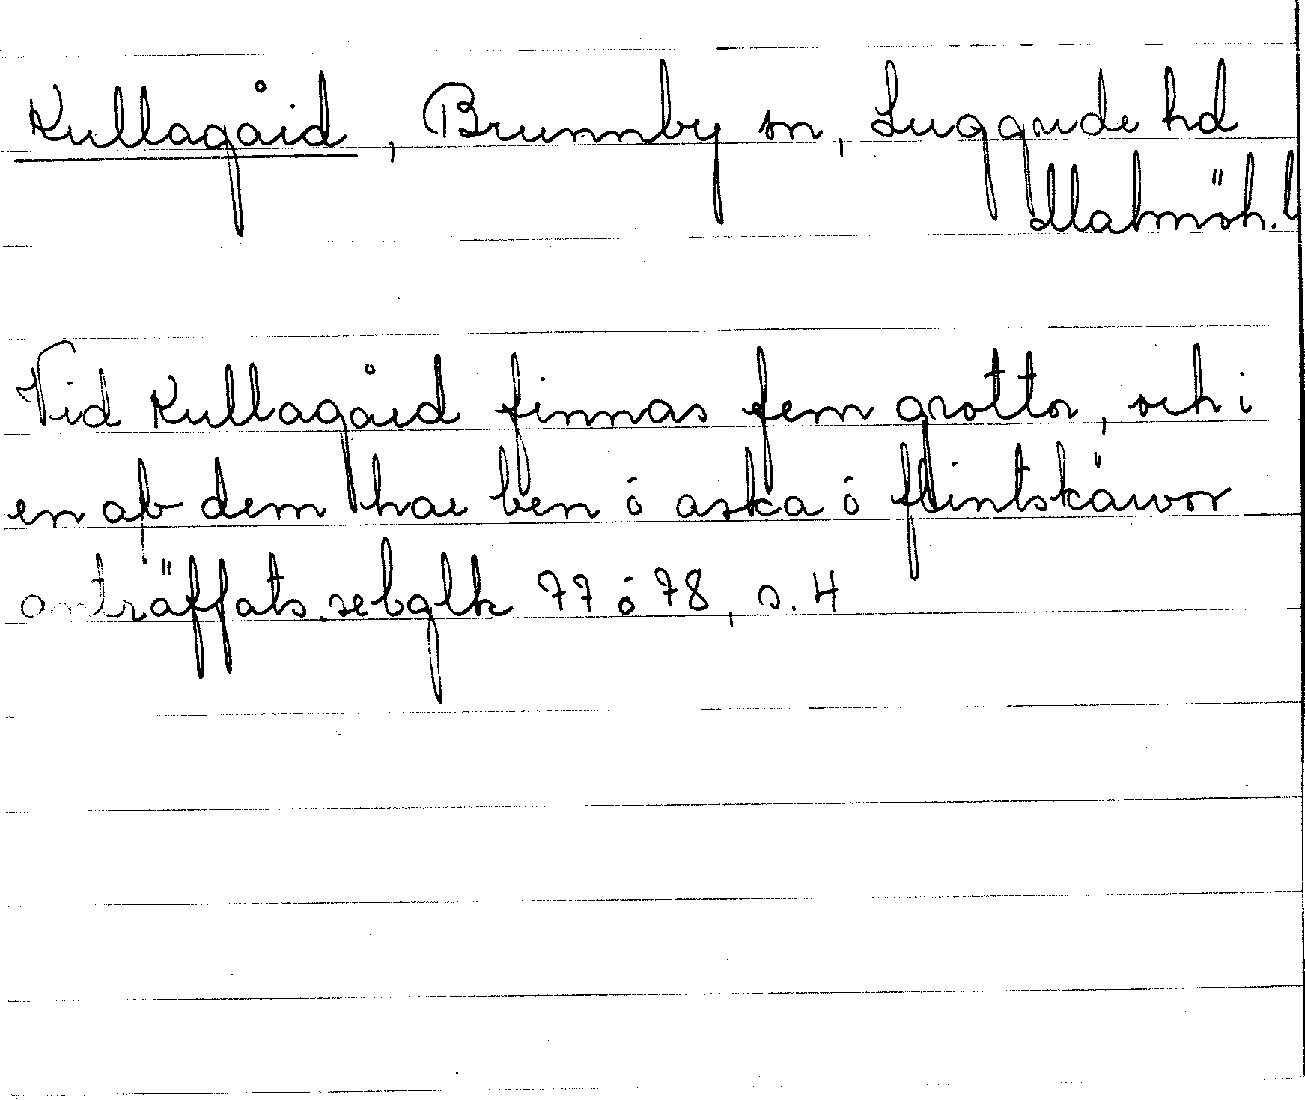 Kullagård, Brunnby sn, Luggude hd
Malmöh. l
Vid Kullagård finnas fem grottor, och i
en af dem har ben ó aska ó flintskärvor
anträffats. se bglk 77 ó 78, s. 4